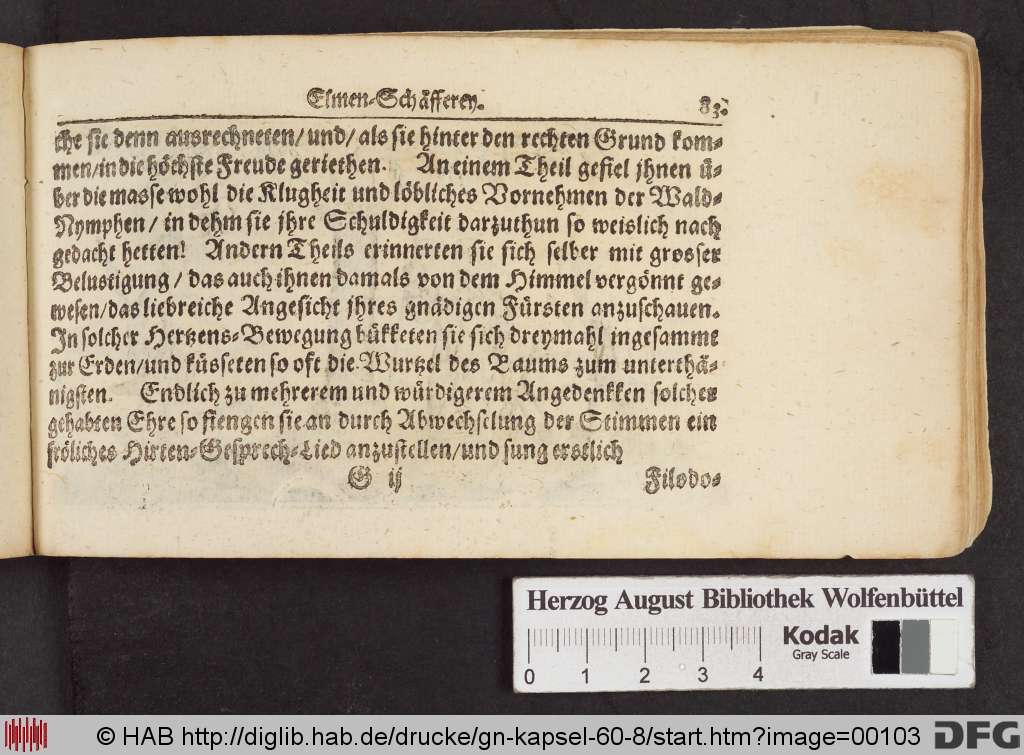 Elmen-Schäfferey. 83.
che sie denn ausrechneten/ und/ als sie hinter den rechten Grund kom-
men/in die höchste Freude geriethen. An einem Theil gefiel jhnen ü-
ber die masse wohl die Klugheit und löbliches Vornehmen der Wald-
Nymphen/ in dehm sie jhre Schuldigkeit darzuthun so weislich nach
gedacht hetten! Andern Theils erinnerten sie sich selber mit grosser
Belustigung / das auch ihnen damals von dem Himmel vergönnt ge-
wesen/das liebreiche Angesicht jhres gnädigen Fürsten anzuschauen.
In solcher Hertzens-Bewegung bükketen sie sich dreymahl ingesammt
zur Erden/und küsseten so oft die Wurtzel des Baums zum unterthä-
nigsten. Endlich zu mehrerem und würdigerem Angedenkken solcher
gehabten Ehre so fiengen sie an durch Abwechselung der Stimmen ein
fröliches Hirten-Gesprech-Lied anzustellen/und sung erstlich
G ij Filodo-
Herzog August Bibliothek Wolfenbüttel
Kodak
Gray Scale
0 1 2 3 4
© HAB http://diglib.hab.de/drucke/gn-kapsel-60-8/start.htm?image=00103
DFG